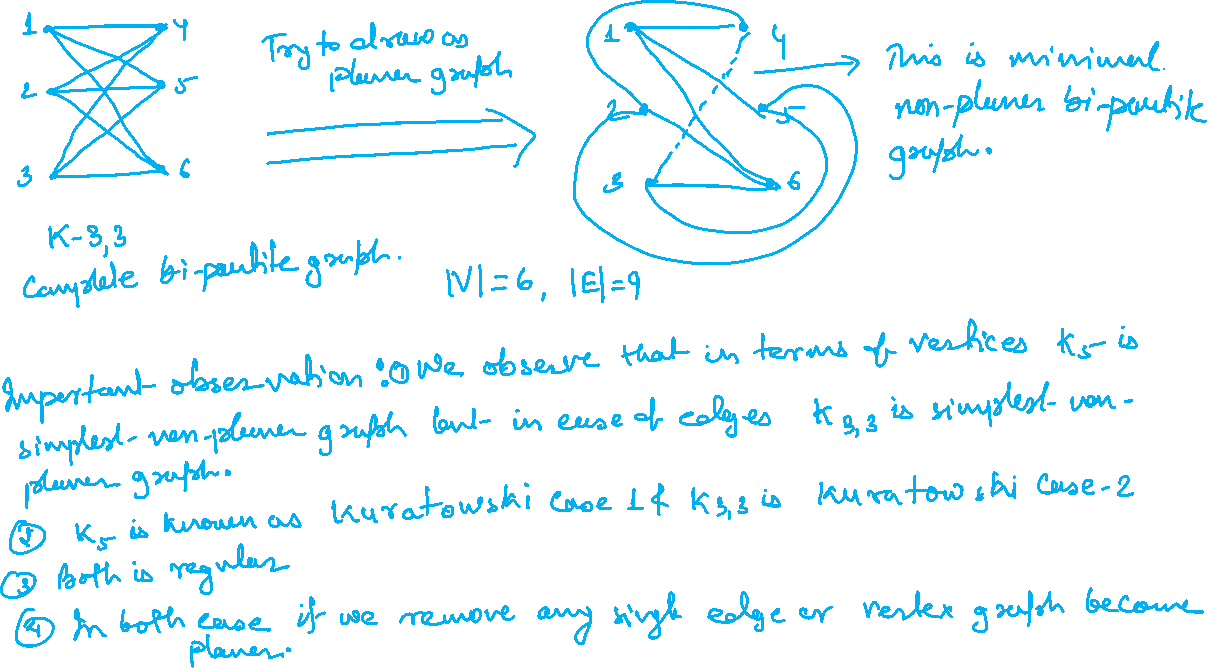 1 4
2 5
3 6
K-3,3
Complete bi-partite graph.
Try to draw as
planer graph
1 4
2 5
3 6
This is minimal
non-planer bi-partite
graph.
|V|=6, |E|=9
Important observation :① We observe that in terms of vertices K5 is
simplest-non-planer graph but in case of edges K3,3 is simplest-non-
planer graph.
② K5 is known as Kuratowski Case 1 & K3,3 is Kuratowski Case-2
③ Both is regular
④ In both case if we remove any single edge or vertex graph become
planer.